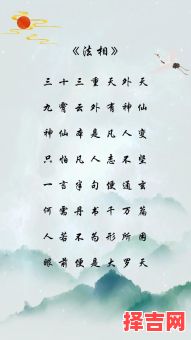 《法相》
三十三重天外天
九霄云外有神仙
神仙本是凡人变
只怕凡人志不坚
一言半句便通玄
何需丹书千万篇
人若不为形所困
眼前便是大罗天
择吉网
zhaijiri.com